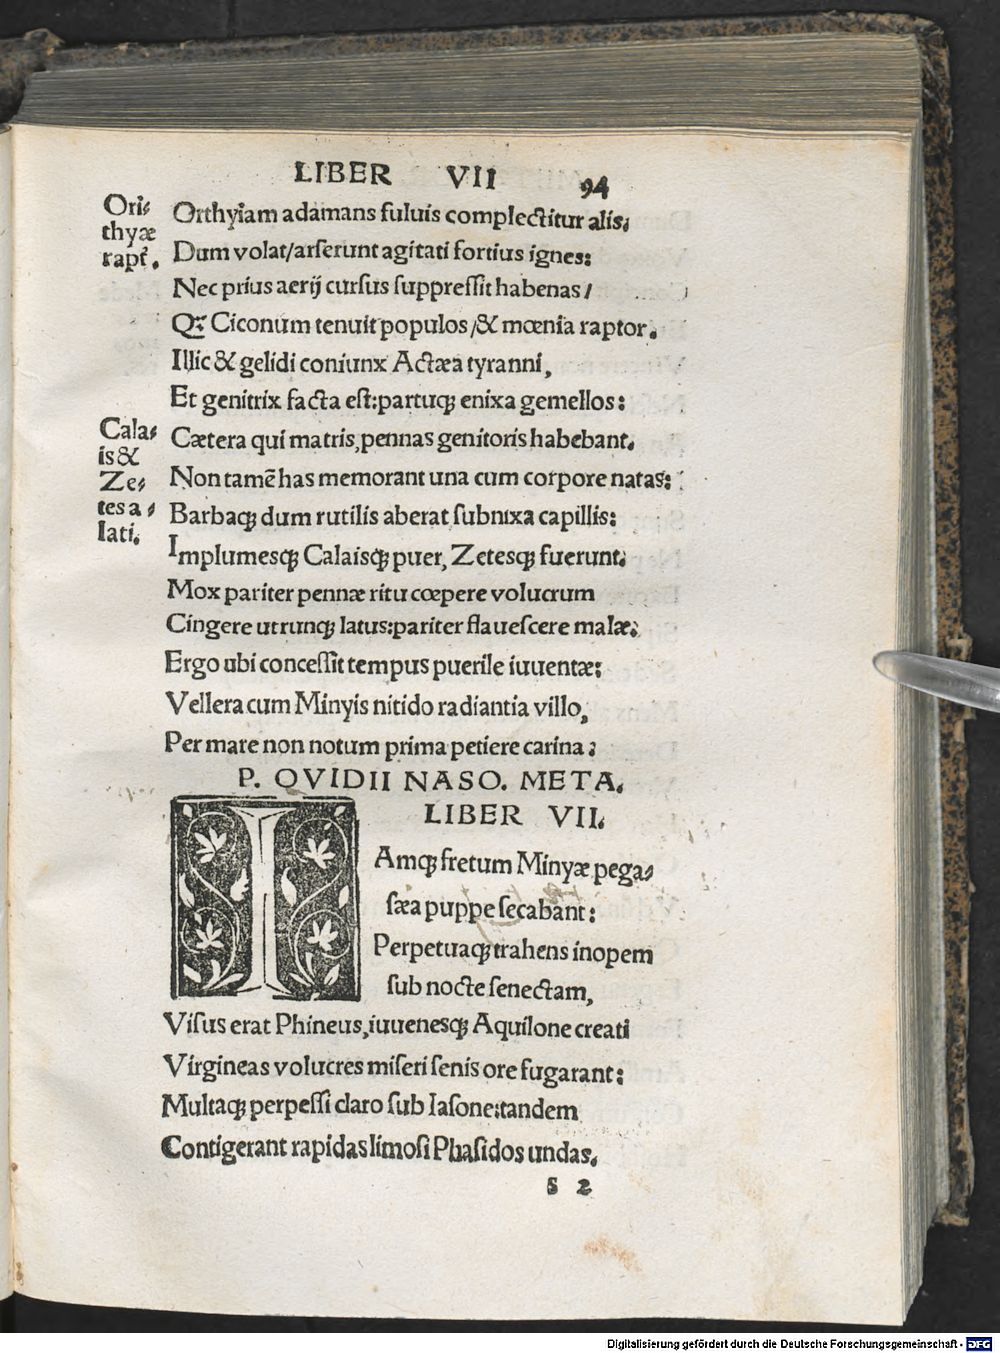 LIBER VII 94
Ori⸗
thyæ
rapt̄.
Orithyiam adamans fuluis complectitur alis:
Dum volat/arſerunt agitati fortius ignes:
Nec prius aerij curſus ſuppreſſit habenas/
Qꝫ Ciconum tenuit populos/& mœnia raptor.
Illic & gelidi coniunx Actæa tyranni,
Et genitrix facta eſt:partuqꝫ enixa gemellos:
Cala⸗
is&
Ze⸗
tes a⸗
lati.
Cætera qui matris,pennas genitoris habebant.
Non tamē has memorant una cum corpore natas:
Barbaqꝫ dum rutilis aberat ſubnixa capillis:
Implumesqꝫ Calaisqꝫ puer, Zetesqꝫ fuerunt:
Mox pariter pennæ ritu cœpere volucrum
Cingere utrunqꝫ latus:pariter flaueſcere malæ:
Ergo ubi conceſſit tempus puerile iuuentæ:
Vellera cum Minyis nitido radiantia villo,
Per mare non notum prima petiere carina:
P. OVIDII NASO. META.
LIBER VII.
IAmqꝫ fretum Minyæ pega⸗
ſæa puppe ſecabant:
Perpetuaqꝫ trahens inopem
ſub nocte ſenectam,
Viſus erat Phineus,iuuenesqꝫ Aquilone creati
Virgineas volucres miſeri ſenis ore fugarant:
Multaqꝫ perpeſſi claro ſub Iaſone:tandem
Contigerant rapidas limoſi Phaſidos undas.
s 2
Digitalisierung gefördert durch die Deutsche Forschungsgemeinschaft - DFG